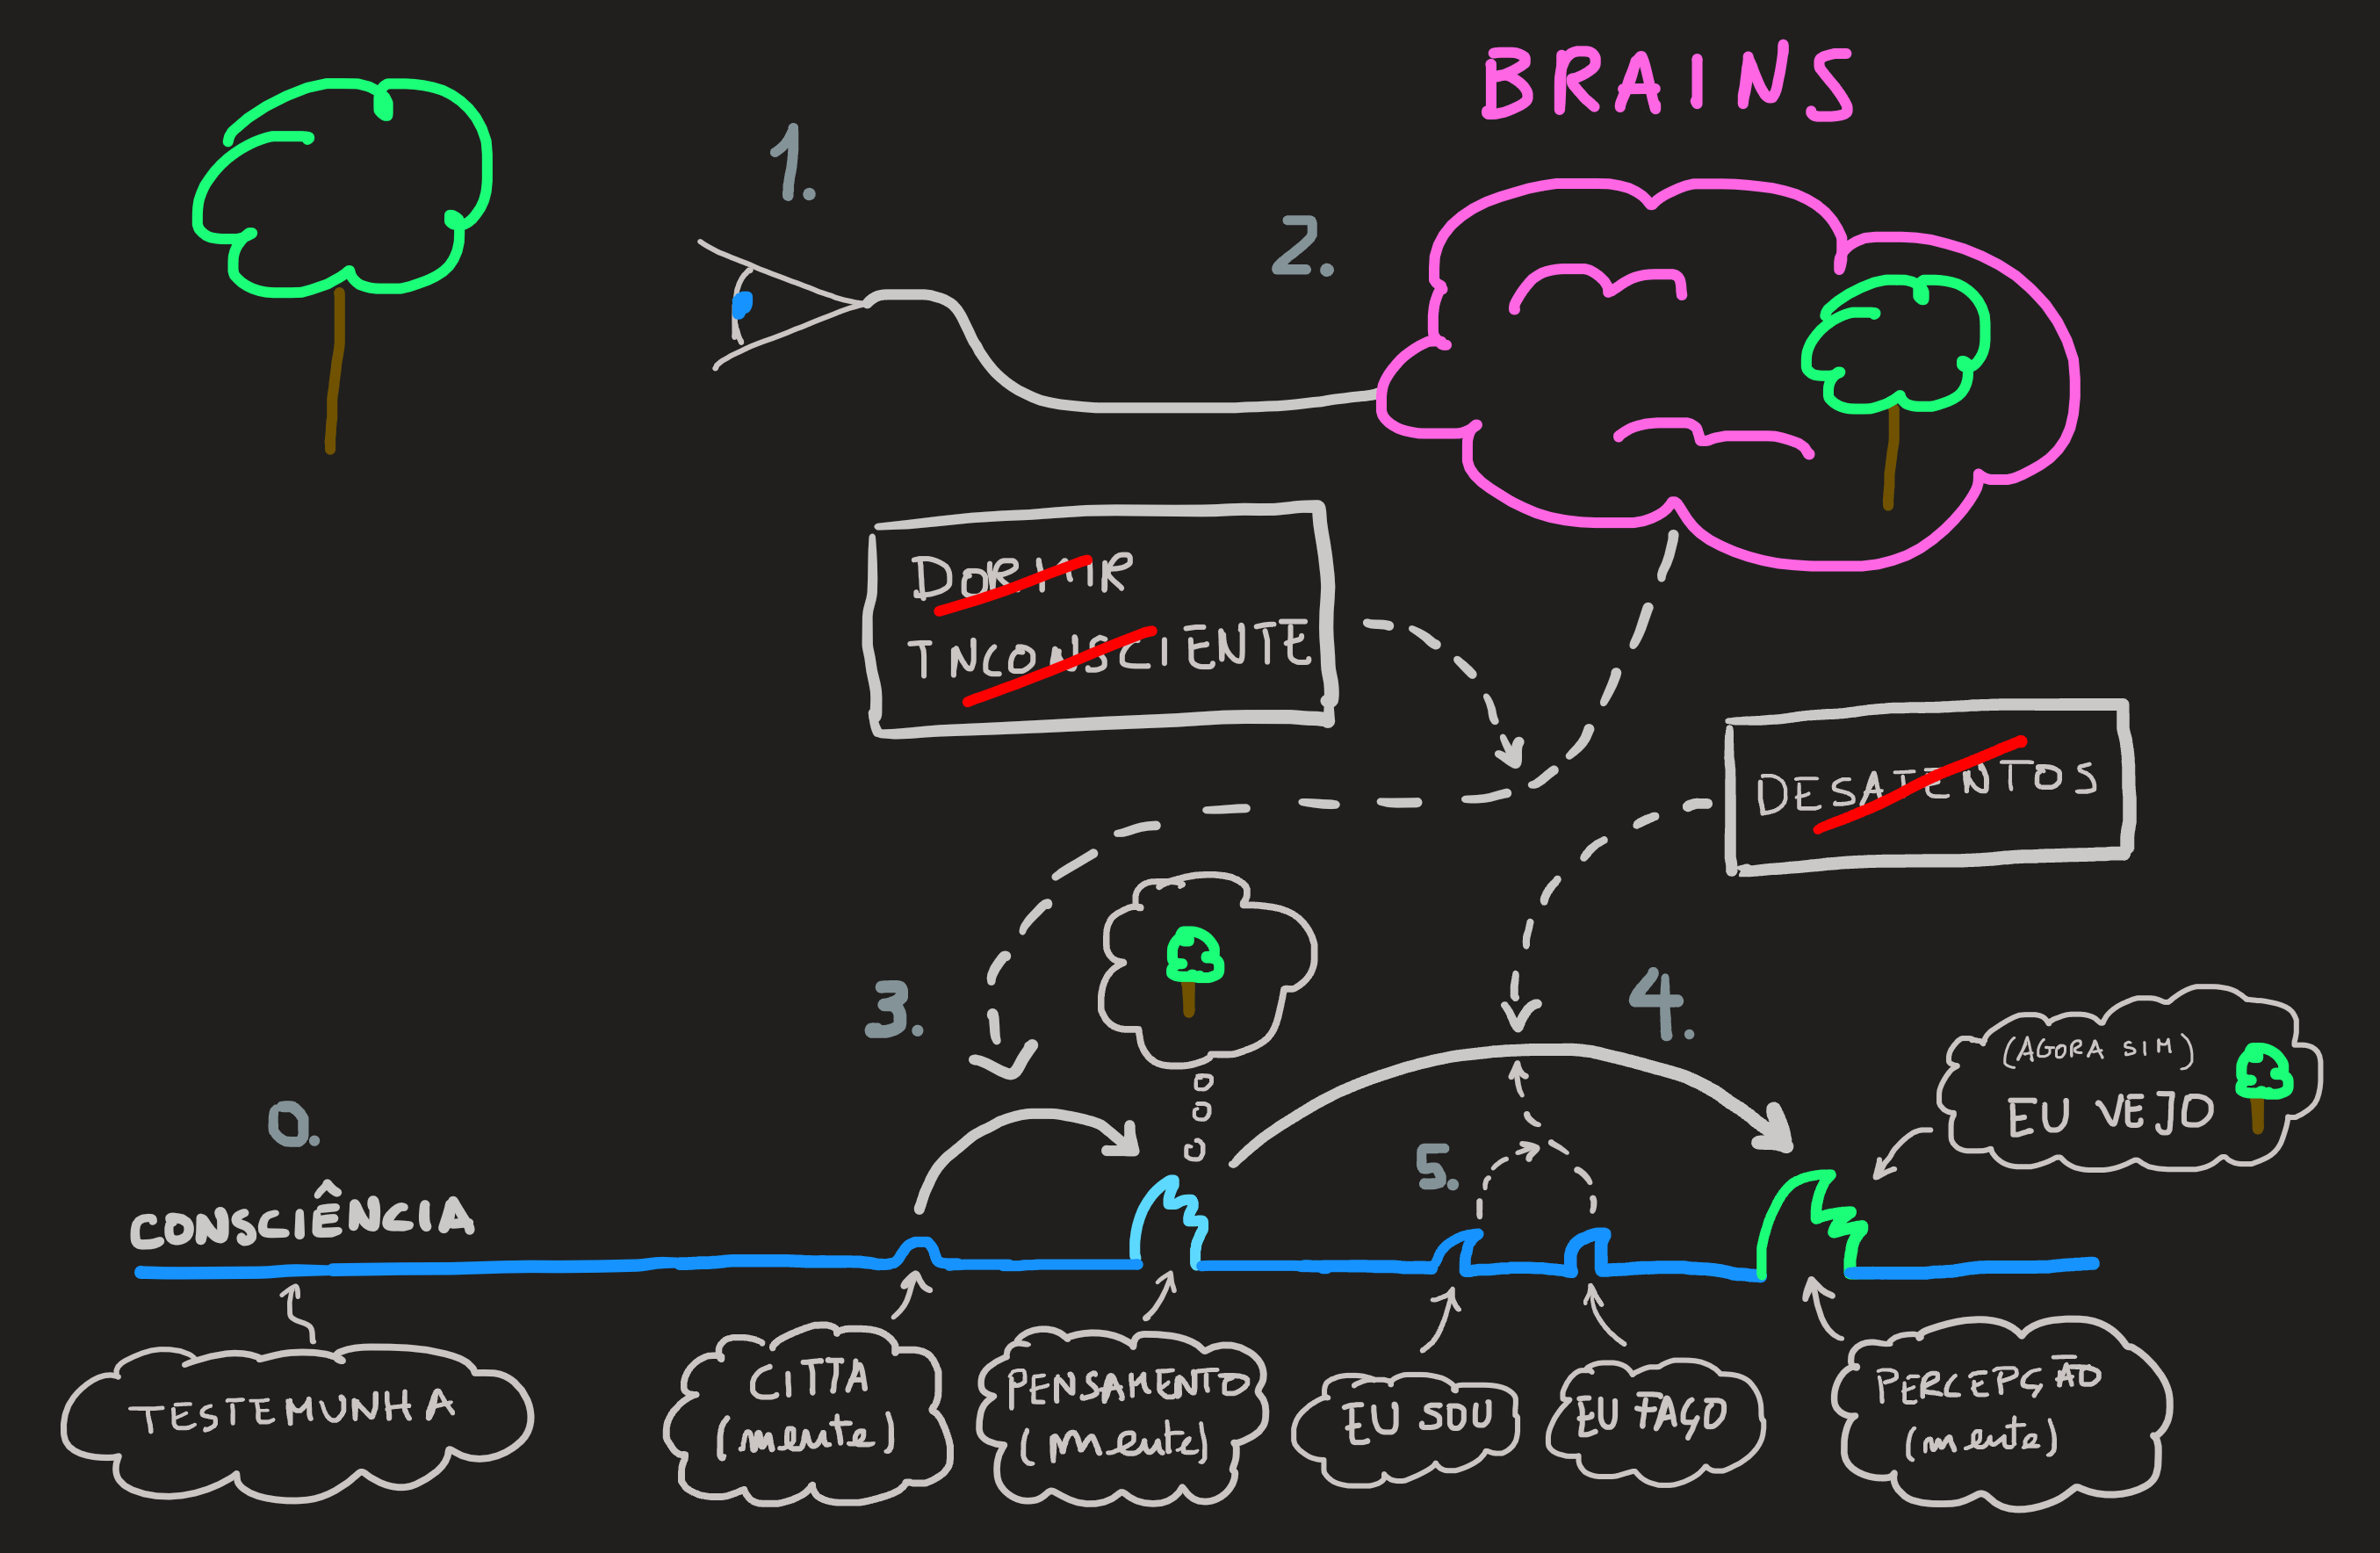 BRAINS
1.
2.
DORMIR
INCONSCIENTE
DESATENTOS
3.
4.
(AGORA SIM)
EU VEJO
0.
5.
CONSCIÊNCIA
TESTEMUNHA
CITTA
(mente)
PENSAMENTO
(mente)
EU SOU
EU FAÇO
PERCEPÇÃO
(mente)